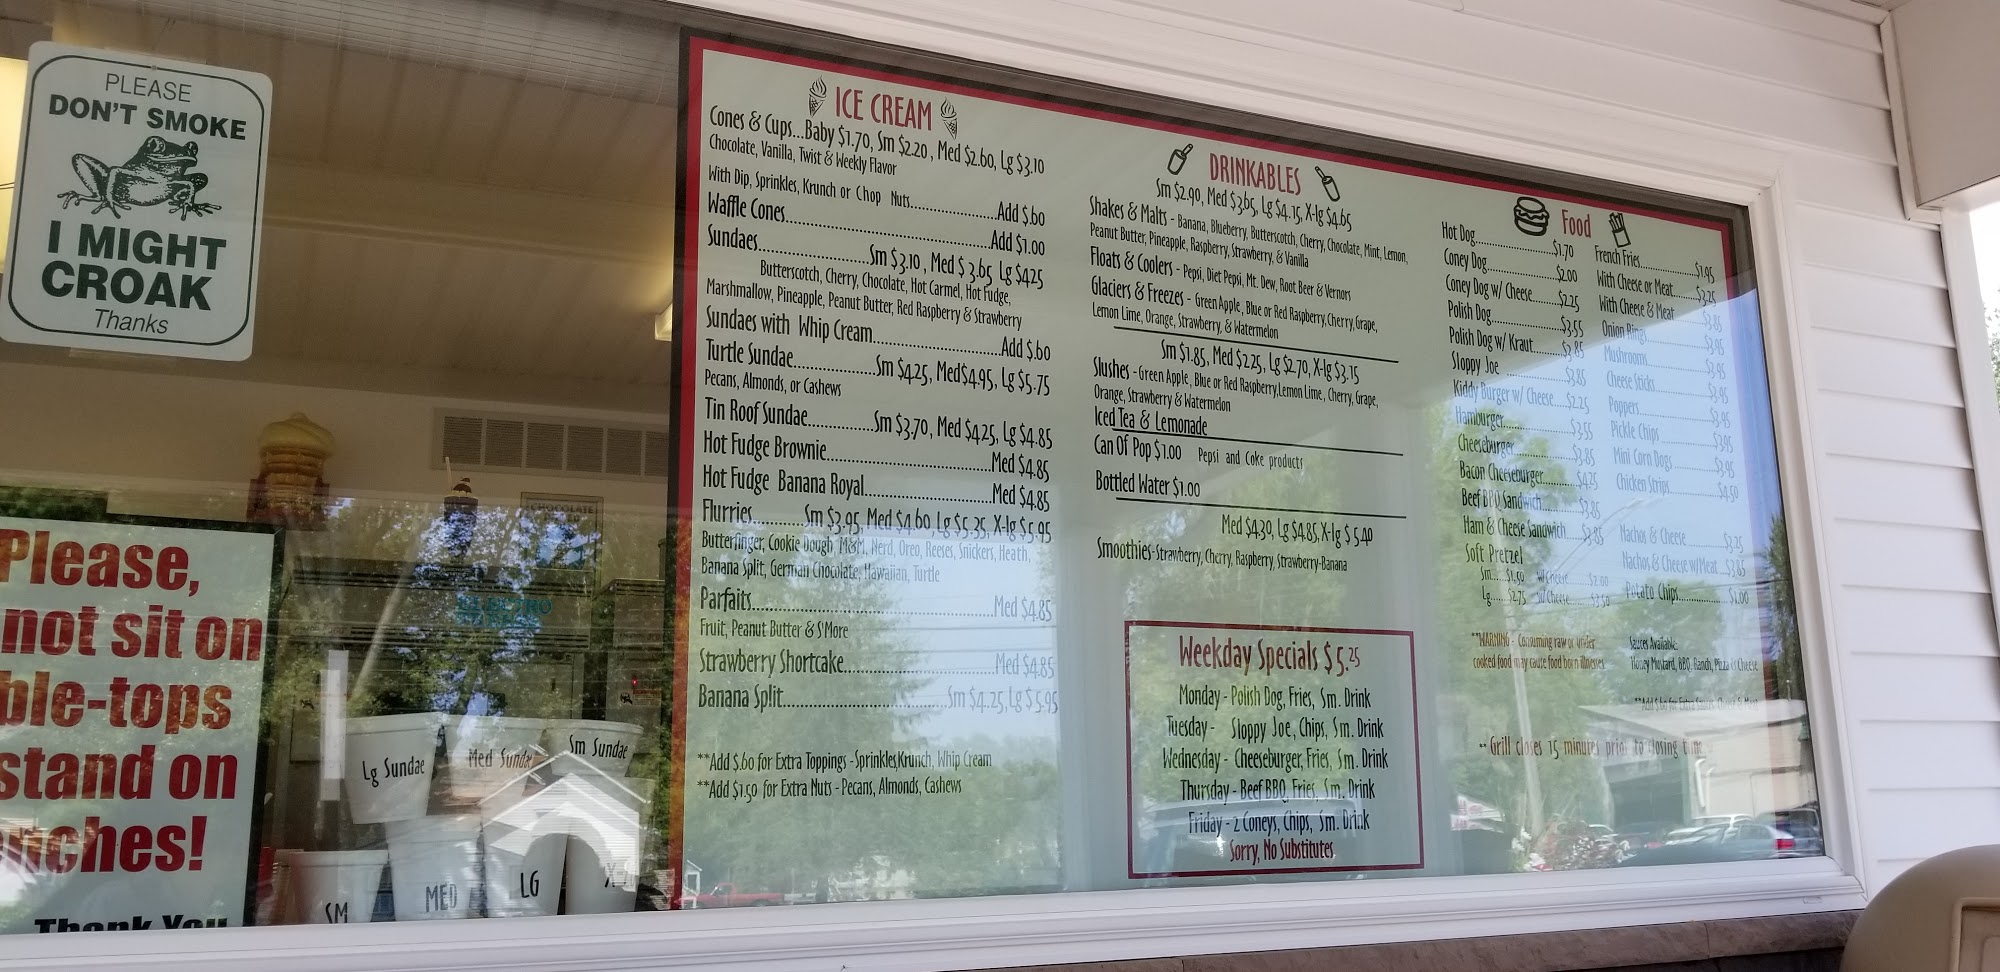 PLEASE
DON'T SMOKE
I MIGHT
CROAK
Thanks
Please,
not sit on
ble-tops
stand on
nches!
Thank You
Lg Sundae
Med Sundae
Sm Sundae
SM
MED
LG
ICE CREAM
Cones & Cups...Baby $1.70, Sm $2.20, Med $2.60, Lg $3.10
Chocolate, Vanilla, Twist & Weekly Flavor
With Dip, Sprinkles, Krunch or Chop Nuts....................Add $.60
Waffle Cones................................................Add $1.00
Sundaes......................Sm $3.10, Med $3.65 Lg $4.25
Butterscotch, Cherry, Chocolate, Hot Carmel, Hot Fudge,
Marshmallow, Pineapple, Peanut Butter, Red Raspberry & Strawberry
Sundaes with Whip Cream..............................Add $.60
Turtle Sundae.................Sm $4.25, Med$4.95, Lg $5.75
Pecans, Almonds, or Cashews
Tin Roof Sundae..............Sm $3.70, Med $4.25, Lg $4.85
Hot Fudge Brownie....................................Med $4.85
Hot Fudge Banana Royal............................Med $4.85
Flurries...........Sm $3.95, Med $4.60, Lg $5.35, X-lg $5.95
Butterfinger, Cookie Dough, M&M, Nerd, Oreo, Reeses, Snickers, Heath,
Banana Split, German Chocolate, Hawaiian, Turtle
Parfaits.....................................................Med $4.85
Fruit, Peanut Butter & S'More
Strawberry Shortcake.................................Med $4.85
Banana Split....................................Sm $4.25, Lg $5.95
**Add $.60 for Extra Toppings -Sprinkles,Krunch, Whip Cream
**Add $1.50 for Extra Nuts - Pecans, Almonds, Cashews
DRINKABLES
Sm $2.90, Med $3.65, Lg $4.15, X-lg $4.65
Shakes & Malts - Banana, Blueberry, Butterscotch, Cherry, Chocolate, Mint, Lemon,
Peanut Butter, Pineapple, Raspberry, Strawberry, & Vanilla
Floats & Coolers - Pepsi, Diet Pepsi, Mt. Dew, Root Beer & Vernors
Glaciers & Freezes - Green Apple, Blue or Red Raspberry, Cherry, Grape,
Lemon Lime, Orange, Strawberry, & Watermelon
Sm $1.85, Med $2.25, Lg $2.70, X-lg $3.15
Slushes - Green Apple, Blue or Red Raspberry,Lemon Lime, Cherry, Grape,
Orange, Strawberry & Watermelon
Iced Tea & Lemonade
Can Of Pop $1.00 Pepsi and Coke products
Bottled Water $1.00
Med $4.30, Lg $4.85, X-lg $5.40
Smoothies-Strawberry, Cherry, Raspberry, Strawberry-Banana
Weekday Specials $5.25
Monday - Polish Dog, Fries, Sm. Drink
Tuesday - Sloppy Joe, Chips, Sm. Drink
Wednesday - Cheeseburger, Fries, Sm. Drink
Thursday - Beef BBQ, Fries, Sm. Drink
Friday - 2 Coneys, Chips, Sm. Drink
Sorry, No Substitutes
Food
Hot Dog....................$1.70
Coney Dog................$2.00
Coney Dog w/ Cheese........$2.25
Polish Dog.................$3.55
Polish Dog w/ Kraut........$3.85
Sloppy Joe.................$3.85
Kiddy Burger w/ Cheese....$2.25
Hamburger.................$3.55
Cheeseburger..............$3.85
Bacon Cheeseburger........$4.25
Beef BBQ Sandwich.........$3.85
Ham & Cheese Sandwich.....$3.85
Soft Pretzel
Sm.....$1.50 w/Cheese......$2.00
Lg......$2.75 w/Cheese......$3.50
French Fries...............$1.95
With Cheese or Meat.......$3.25
With Cheese & Meat.......$3.85
Onion Rings................$3.95
Mushrooms................$3.95
Cheese Sticks..............$3.95
Poppers...................$3.95
Pickle Chips...............$3.95
Mini Corn Dogs............$3.95
Chicken Strips.............$4.50
Nachos & Cheese..........$3.25
Nachos & Cheese w/Meat...$3.85
Potato Chips...............$1.00
**WARNING - Consuming raw or under
cooked food may cause food born illnesses
Sauces Available:
Honey Mustard, BBQ, Ranch, Pizza & Cheese
**Add $.60 for Extra
** Grill closes 15 minutes prior to closing time